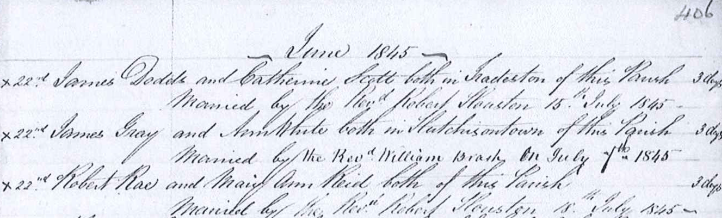 406
June 1845
x 22nd James Dodds and Catherine Scott both in Tradeston of this Parish 3 days
Married by the Revd Robert Houston 15th July 1845
x 22nd James Gray and Ann White both in Hutchisontown of this Parish 3 days
Married by the Revd William Brash on July 7th 1845
x 22nd Robert Rae and Mary Ann Reid both of this Parish 3 days
Married by the Revd Robert Houston July 1845